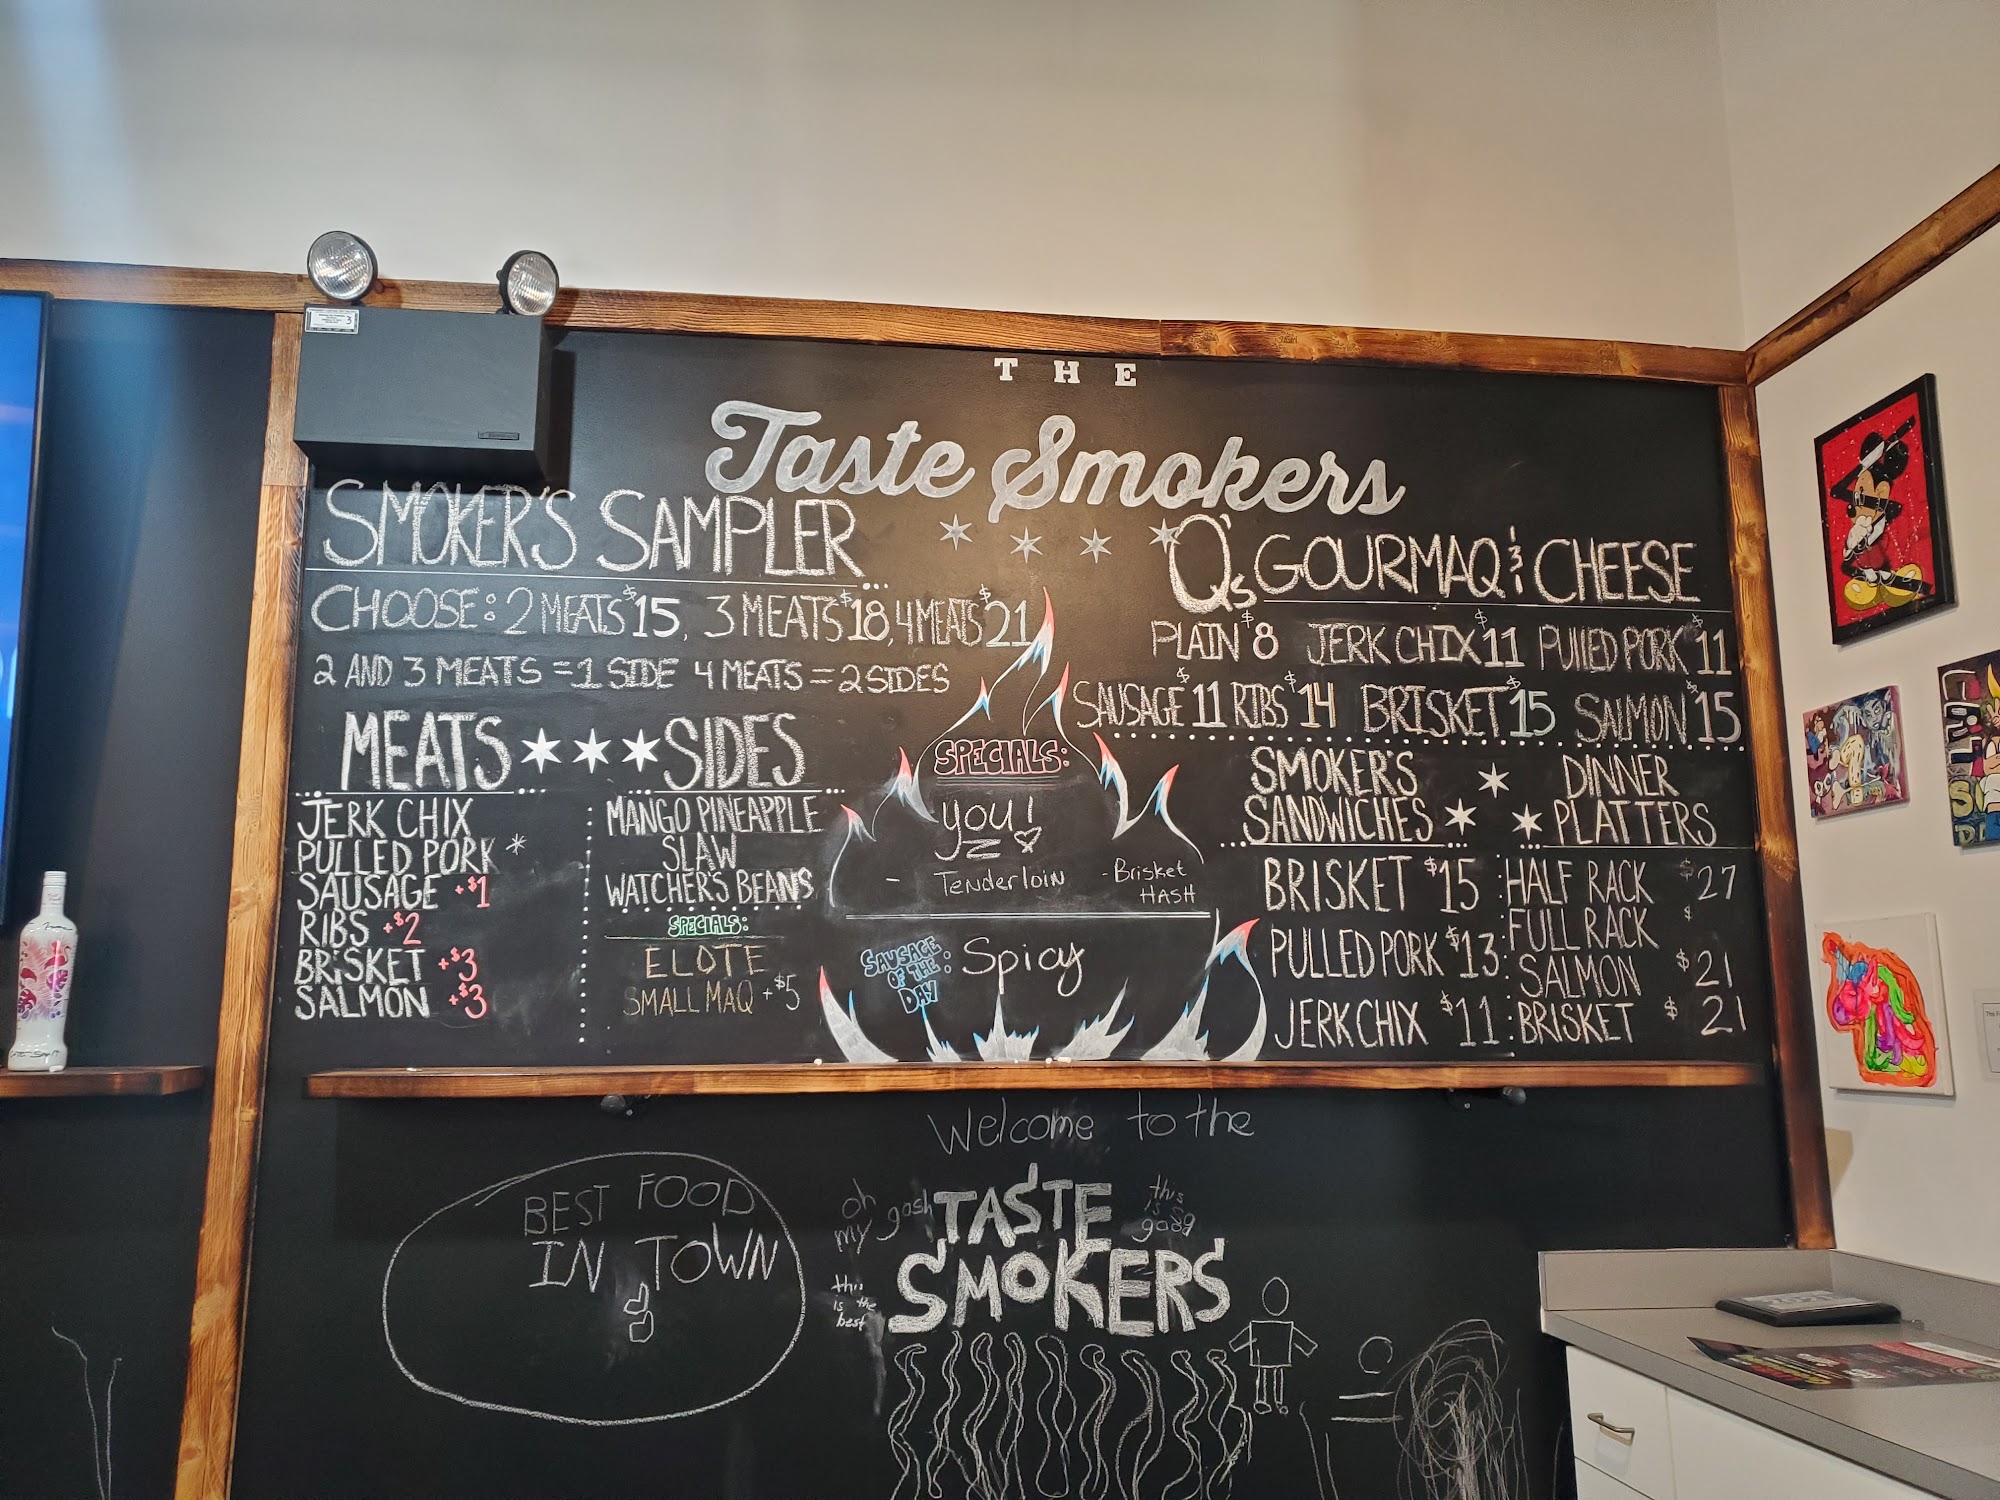 THE
Taste Smokers
SMOKER'S SAMPLER
CHOOSE: 2 MEATS $15, 3 MEATS $18, 4 MEATS $21
2 AND 3 MEATS = 1 SIDE 4 MEATS = 2 SIDES
MEATS
JERK CHIX
PULLED PORK *
SAUSAGE +$1
RIBS +$2
BRISKET +$3
SALMON +$3
SIDES
MANGO PINEAPPLE
SLAW
WATCHER'S BEANS
SPECIALS:
ELOTE
SMALL MAQ +$5
SPECIALS:
YOU!
- Tenderloin
- Brisket
HASH
SAUSAGE
OF THE:
DAY
Spicy
Q's GOURMAQ & CHEESE
PLAIN $8 JERK CHIX $11 PULLED PORK $11
SAUSAGE $11 RIBS $14 BRISKET $15 SALMON $15
SMOKER'S
SANDWICHES
BRISKET $15
PULLED PORK $13
JERK CHIX $11
DINNER
PLATTERS
HALF RACK $27
FULL RACK $
SALMON $21
BRISKET $21
Welcome to the
TASTE
SMOKERS
oh
my gosh
this
is so
good
this
is the
best
BEST FOOD
IN TOWN